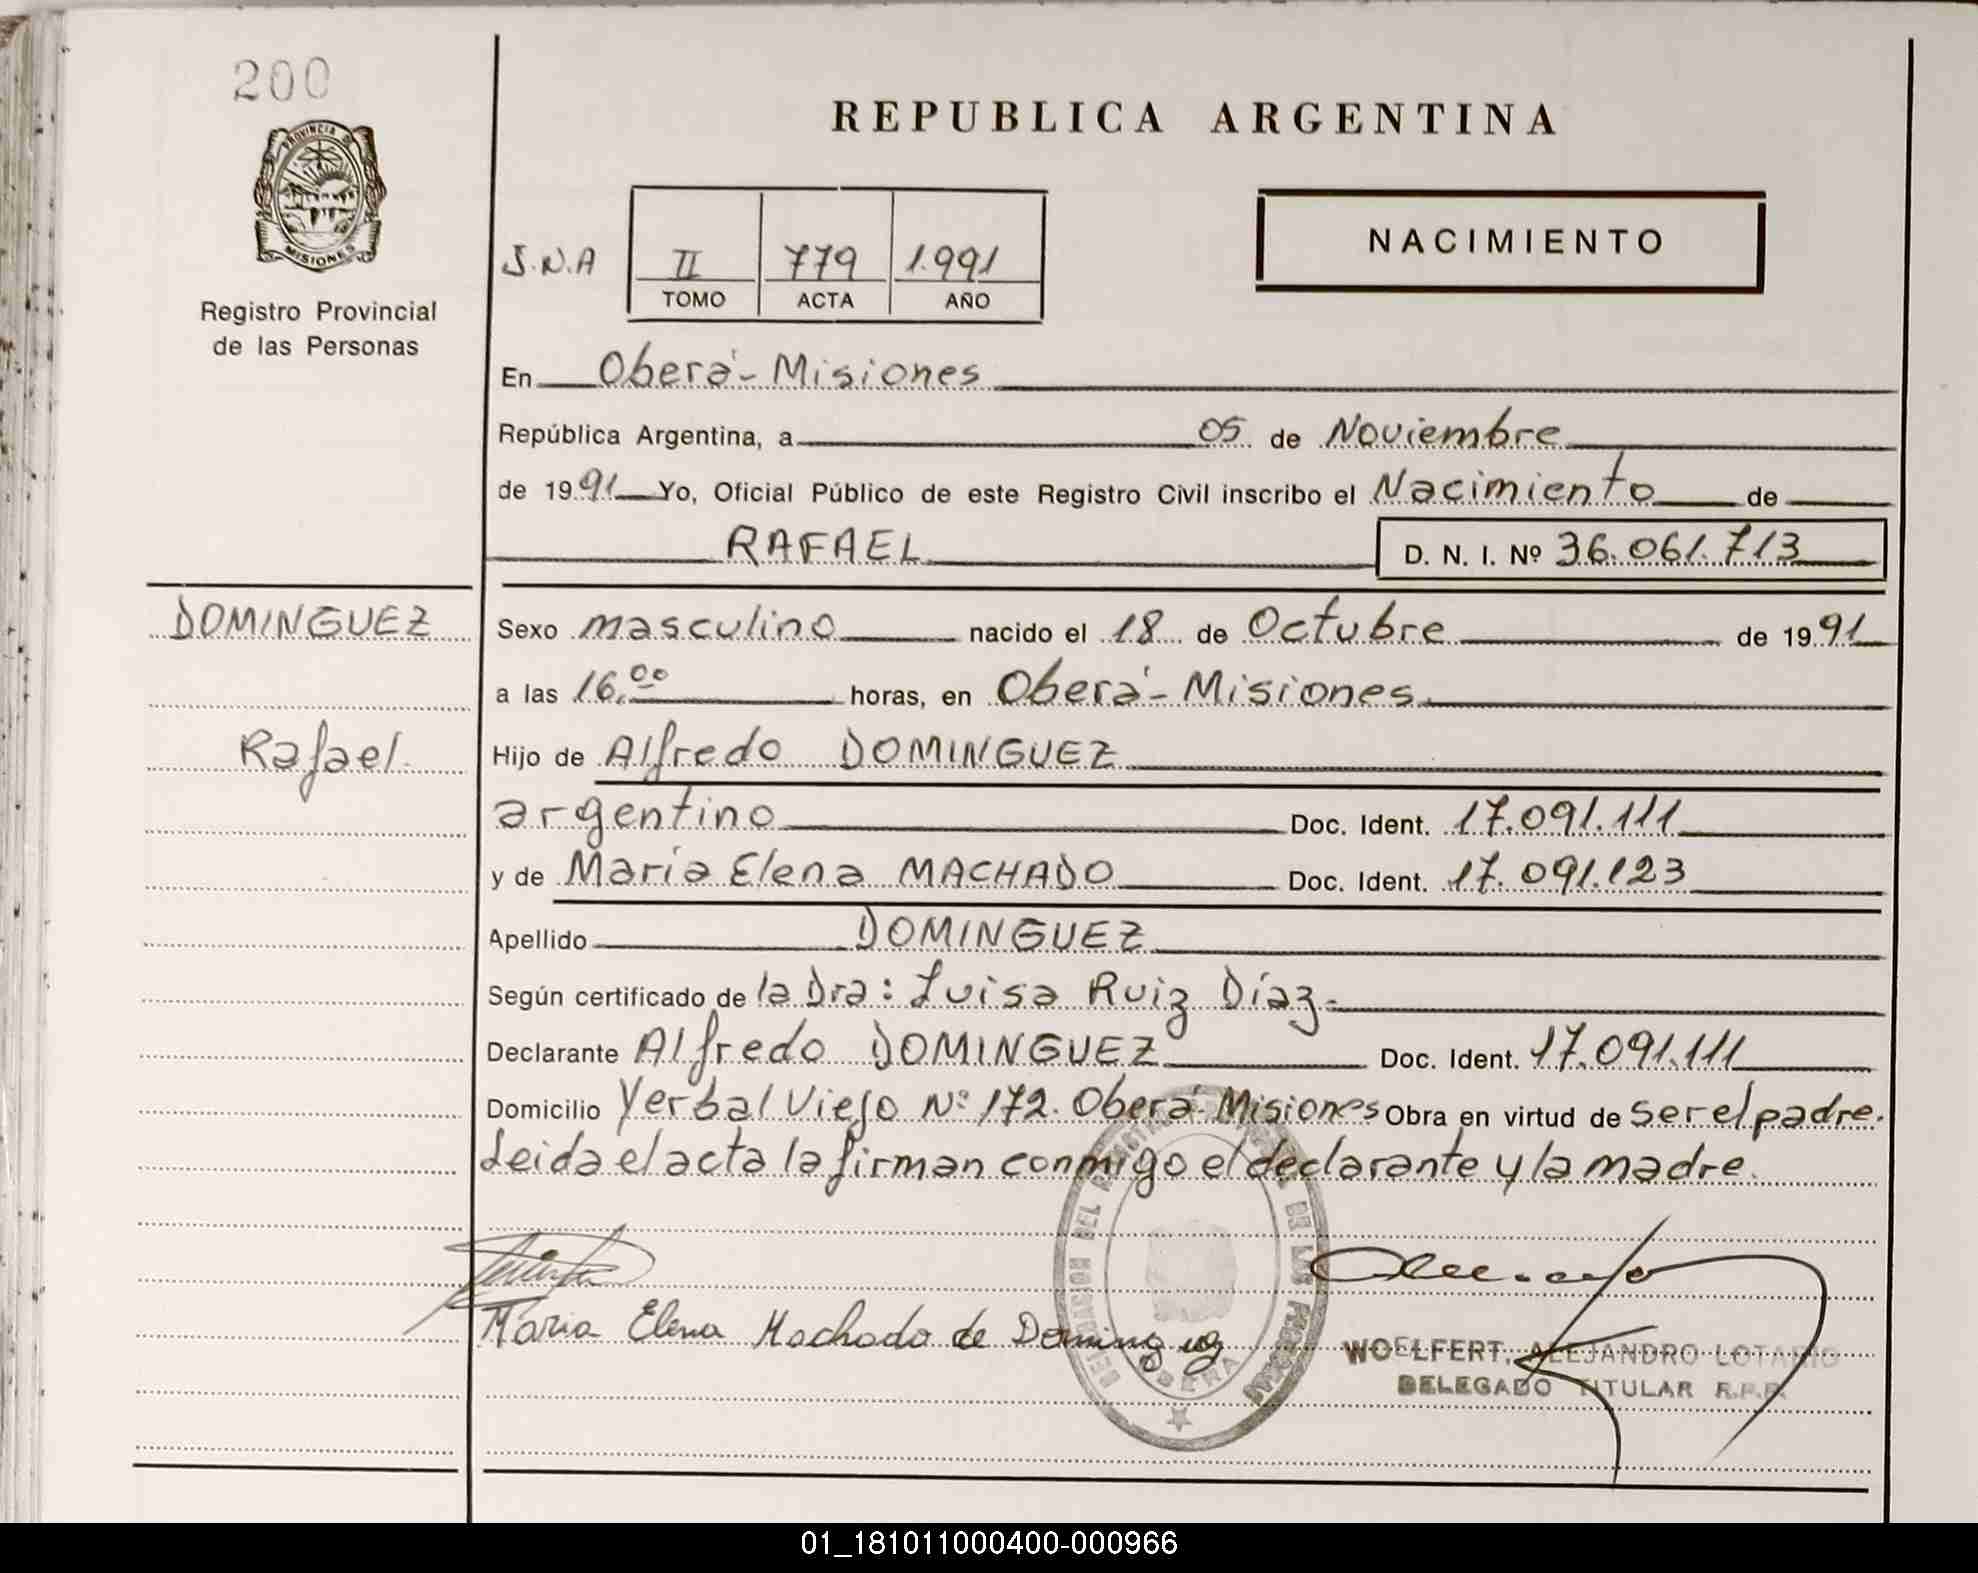 200
PROVINCIA DE
MISIONES
Registro Provincial
de las Personas
REPUBLICA ARGENTINA
J.N.A
II 779 1.991
TOMO ACTA AÑO
NACIMIENTO
En Oberá - Misiones
República Argentina, a 05 de Noviembre
de 1991 Yo, Oficial Público de este Registro Civil inscribo el Nacimiento de
RAFAEL D. N. I. Nº 36.061.713
DOMINGUEZ
Rafael.
Sexo masculino nacido el 18 de Octubre de 1991
a las 16,00 horas, en Oberá - Misiones
Hijo de Alfredo DOMINGUEZ
argentino Doc. Ident. 17.091.111
y de María Elena MACHADO Doc. Ident. 17.091.123
Apellido DOMINGUEZ
Según certificado de la Dra: Luisa Ruiz Díaz.
Declarante Alfredo DOMINGUEZ Doc. Ident. 17.091.111
Domicilio Yerbal Viejo Nº 172. Oberá Misiones Obra en virtud de ser el padre.
Leida el acta la firman conmigo el declarante y la madre.
Maria Elena Machado de Dominguez
DEL DE LAS PERSONAS
OBERA
WOELFERT, ALEJANDRO LOTARIO
DELEGADO TITULAR R.P.P.
01_181011000400-000966